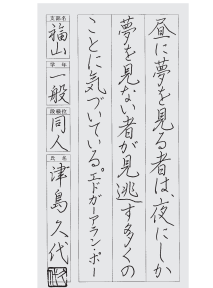 昼に夢を見る者は、夜にしか
夢を見ない者が見逃す多くの
ことに気づいている。エドガーアラン・ポー
支部名
福山
学年
一般
段級位
同人
氏名
津島久代